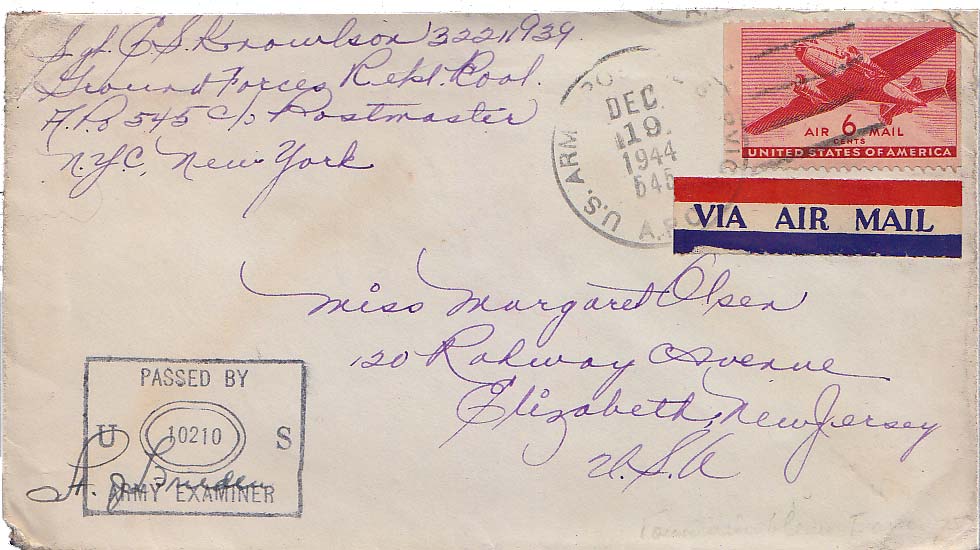 Sgt. C S. Knowlson 32211939
Ground Forces Repl. Pool.
A.P.O 545 c/o Postmaster
N.Y.C. New York
U.S. ARMY
DEC
19
1944
545
A.P.O.
AIR 6 MAIL
CENTS
UNITED STATES OF AMERICA
VIA AIR MAIL
Miss Margaret Olsen
120 Rahway Avenue
Elizabeth, New Jersey
U.S.A
PASSED BY
U 10210 S
ARMY EXAMINER